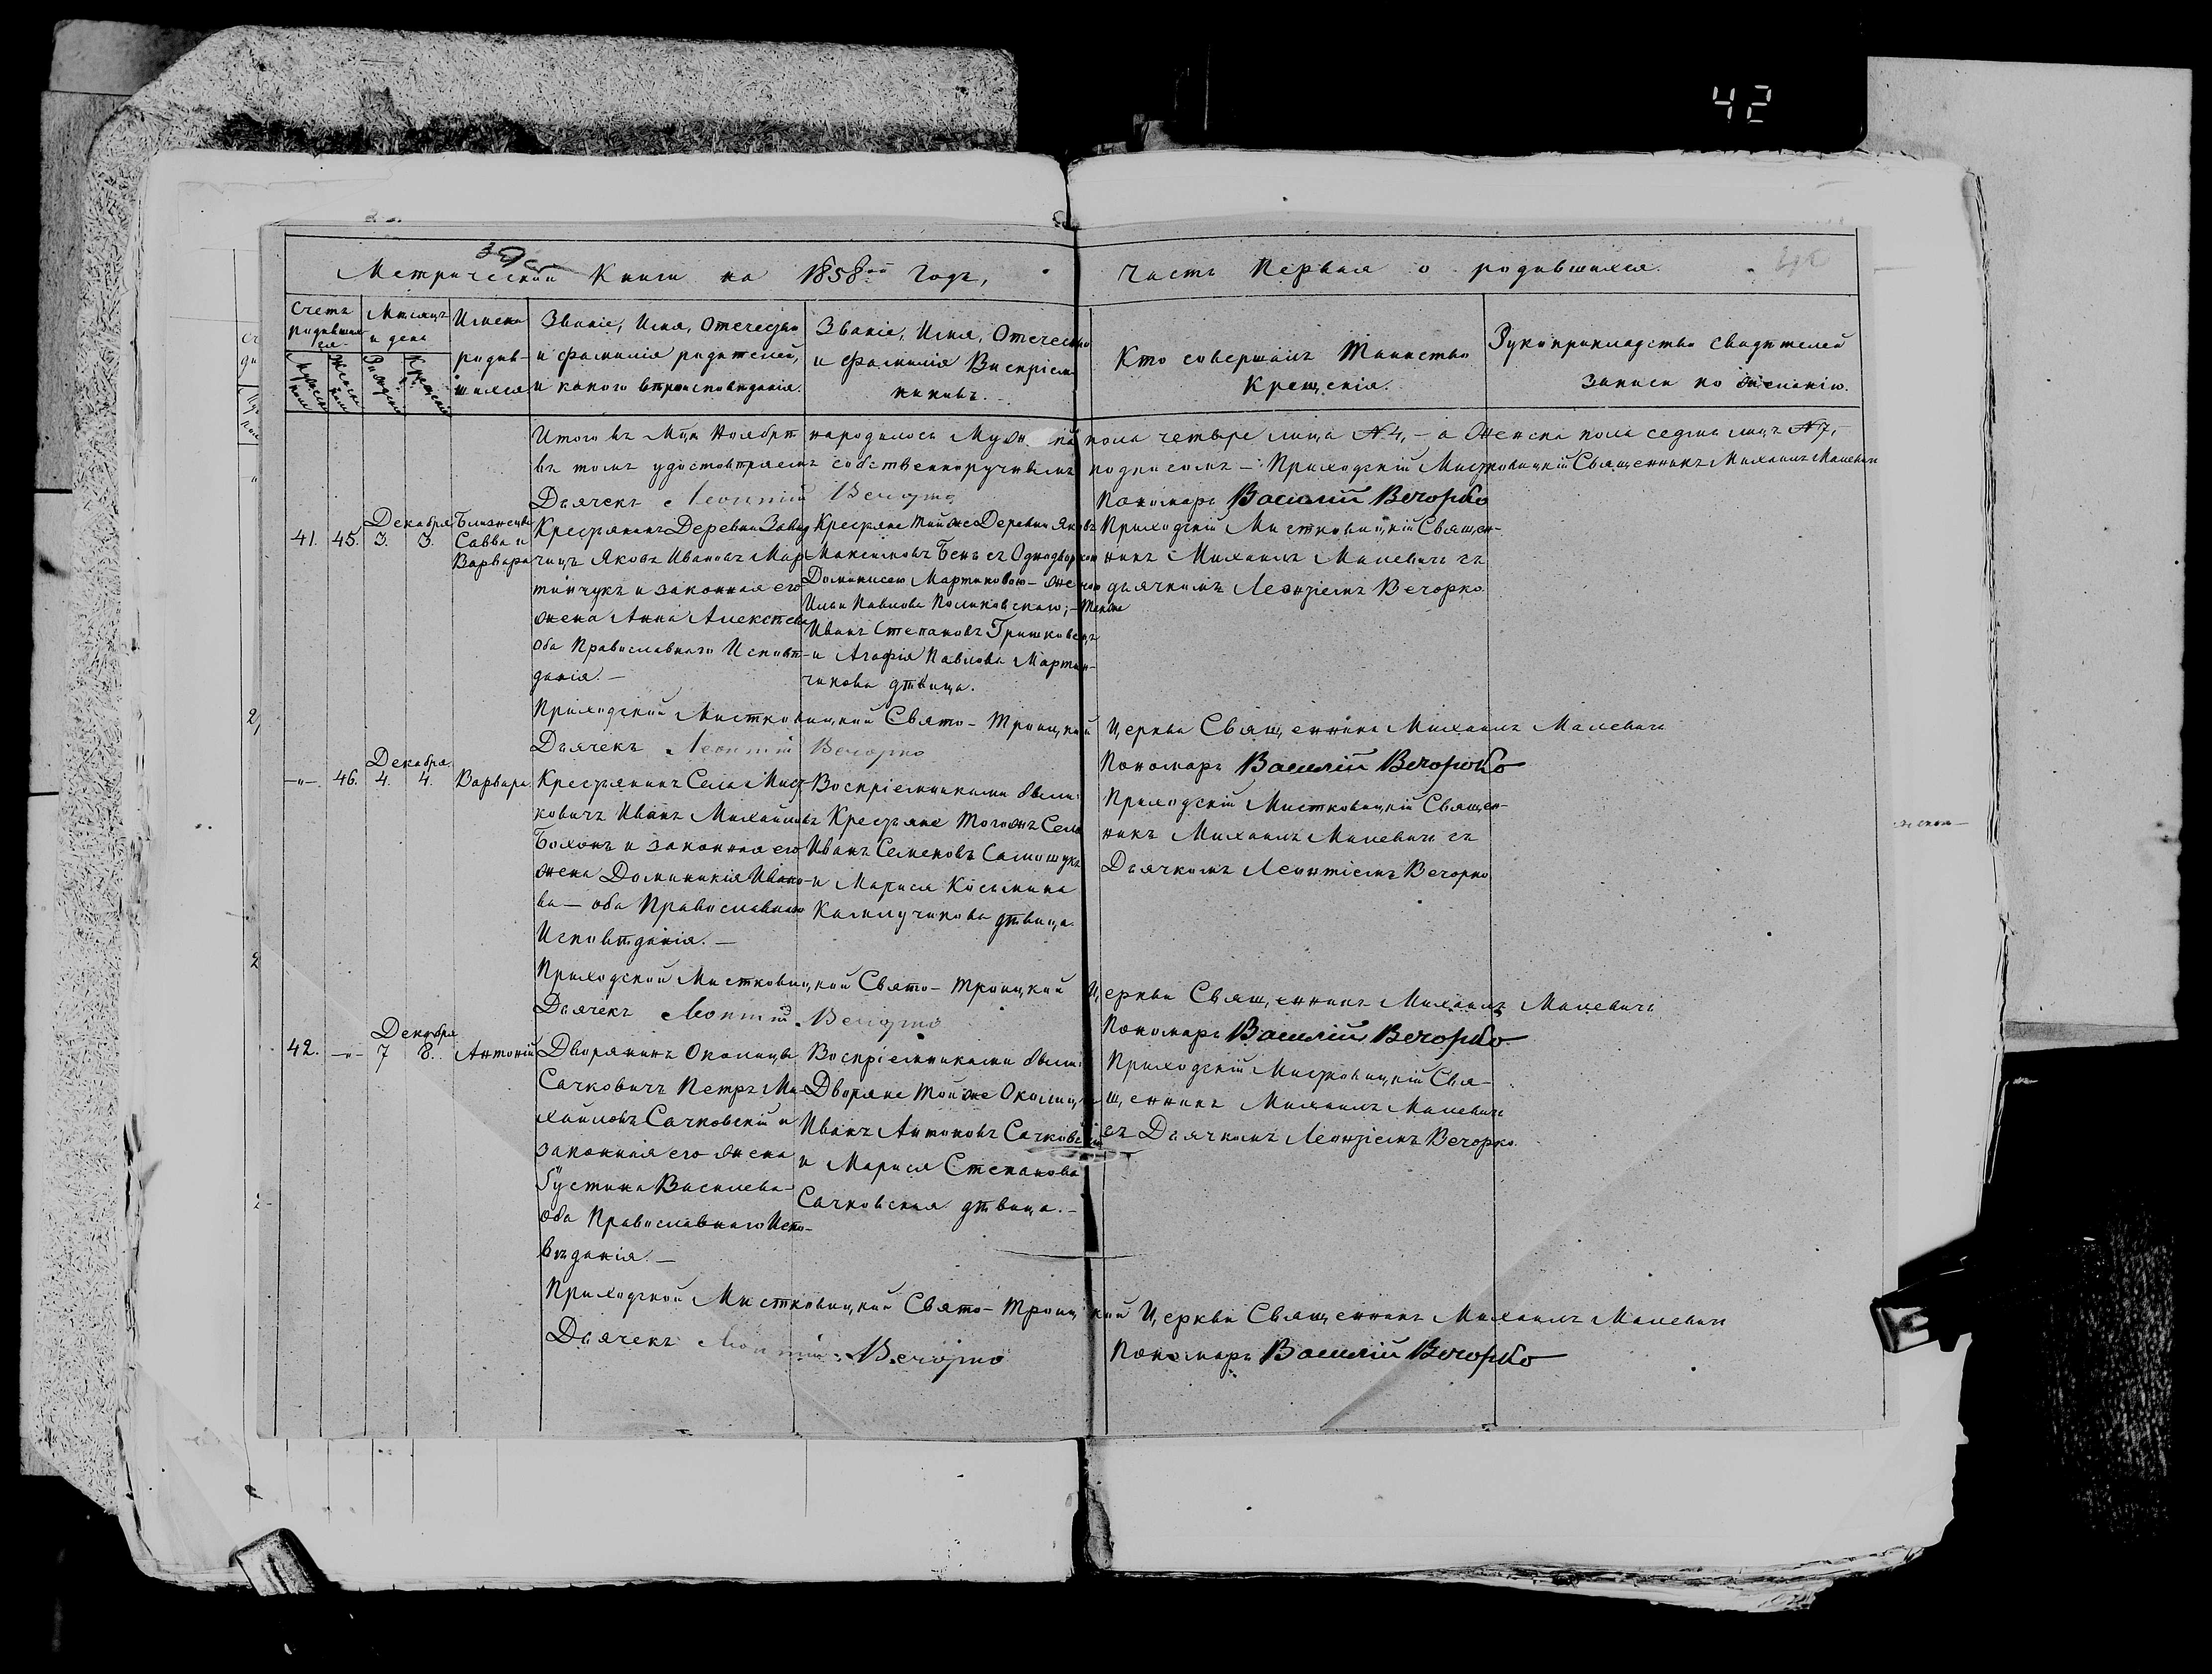 42
Метрической Книги на 1858ой Годъ,
Часть Первая о родившихся.
Счетъ родившихся.
Мужеска пола
Женска пола
Мѣсяцъ и день
Рожденія
Крещенія
Имена родившихся
Званіе, Имя, Отчество
и фамилія родителей,
и какого вѣроисповѣданія.
Званіе, Имя, Отчество
и фамилія Воспріем-
никовъ.
Кто совершалъ Таинство
Крещенія.
Рукоприкладство свидѣтелей
записи по желанію.
Итого въ Мцѣ Ноябрѣ народилось Мужеска пола четыре лица №4,- а Женска пола седмь лицъ №7,
въ томъ удостовѣряемъ собственноручнымъ подписомъ -: Приходскій Мистковицкій Священникъ Михаилъ Малевич
Дьячекъ Леонтій Вечорко
Пономарь Василій Вечорко
41. 45.
Декабря
3. 3.
Близнецы
Савва и
Варвара
Крестьянинъ Деревни Завид
чицъ Яковъ Ивановъ Мар
тинчукъ и законная его
жена Анна Алексѣева
оба Православнаго Исповѣ-
данія. -
Крестьяне той же Деревни Яковъ
Максимовъ Бенъ съ Однодворкою
Доминикою Мартиновою - женою
Ильи Павлова Поликовскаго; - Также
Иванъ Степановъ Гришковецъ
и Агафія Павлова Мартин-
чикова дѣвица.
Приходскій Мистковицкій Священ-
никъ Михаилъ Малевичъ съ
дьячкомъ Леонтіемъ Вечорко
Приходской Мистковицкой Свято-Троицкой Церкви Священникъ Михаилъ Малевичъ
Дьячекъ Леонтій Вечорко
Пономарь Василій Вечорко
-"- 46.
Декабря.
4. 4.
Варвара.
Крестьянинъ Села Мист-
ковичъ Иванъ Михайловъ
Боханъ и законная его
жена Доминикія Ивано-
ва - оба Православнаго
Исповѣданія. -
Воспріемниками были:
Крестьяне тогожъ Села
Иванъ Семеновъ Самошукъ
и Марися Космина
Каллаучикова дѣвица.
Приходскій Мистковицкій Священ-
никъ Михаилъ Малевичъ съ
Дьячкомъ Леонтіемъ Вечорко
Приходской Мистковицкой Свято-Троицкой Церкви Священникъ Михаилъ Малевичъ
Дьячекъ Леонтій Вечорко
Пономарь Василій Вечорко
42. -"-
Декабря
7 8.
Антоній
Дворянинъ Околицы
Сачковичъ Петръ Ми-
хайловъ Сачковскій и
законная его жена
Густина Васильева
оба Православнаго Испо-
вѣданія. -
Воспріемниками были:
Дворяне той же Околицы
Иванъ Антоновъ Сачковскій
и Марися Степанова
Сачковская дѣвица. -
Приходскій Мистковицкій Свя-
щенникъ Михаилъ Малевичъ
съ Дьячкомъ Леонтіемъ Вечорко
Приходской Мистковицкой Свято-Троицкой Церкви Священникъ Михаилъ Малевич
Дьячекъ Леонтій Вечорко
Пономарь Василій Вечорко